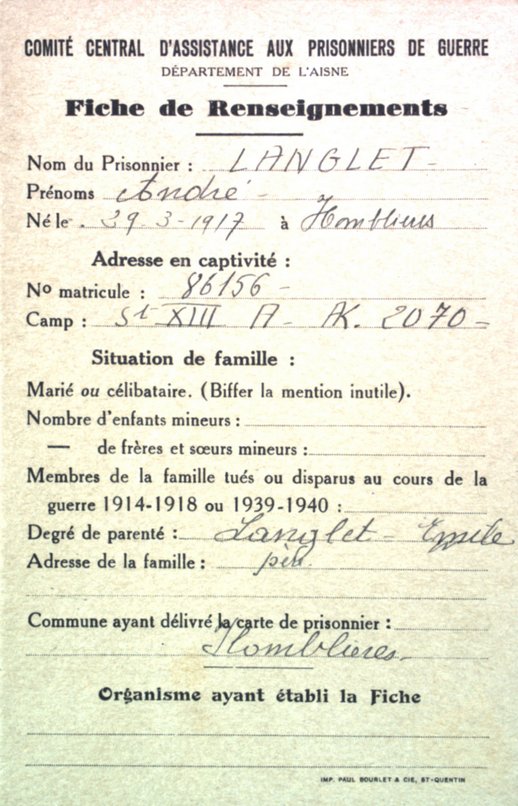 COMITÉ CENTRAL D'ASSISTANCE AUX PRISONNIERS DE GUERRE
DÉPARTEMENT DE L'AISNE
Fiche de Renseignements
Nom du Prisonnier : LANGLET -
Prénoms André -
Né le . 29-3-1917 à Homblières
Adresse en captivité :
No matricule : 86156 -
Camp : St XIII A - AK. 2070 -
Situation de famille :
Marié ou célibataire. (Biffer la mention inutile).
Nombre d'enfants mineurs :
— de frères et sœurs mineurs :
Membres de la famille tués ou disparus au cours de la
guerre 1914-1918 ou 1939-1940 :
Degré de parenté : Langlet - Emile
Adresse de la famille : père
Commune ayant délivré la carte de prisonnier :
Homblières
Organisme ayant établi la Fiche
IMP. PAUL BOURLET & CIE, ST-QUENTIN